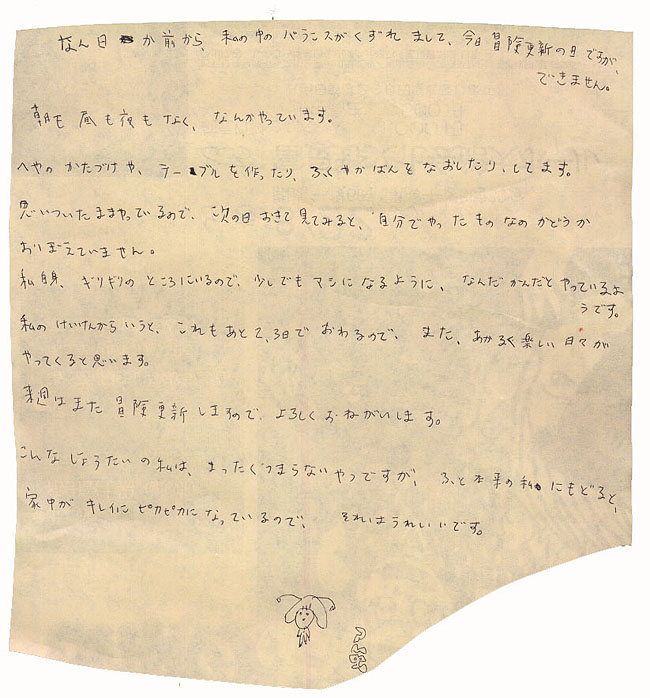 なん日か前から、私の中のバランスがくずれまして、今日冒険更新の日ですが、
できません。
朝も昼も夜もなく、なんかやっています。
へやのかたづけや、テーブルを作ったり、ふくやかばんをなおしたり、してます。
思いついたままやっているので、次の日おきて見てみると、自分でやったものなのかどうか
おぼえていません。
私自身、ギリギリのところにいるので、少しでもマシになるように、なんだかんだとやっているよ
うです。
私のけいけんからいうと、これもあと2,3日でおわるので、また、あかるく楽しい日々が
やってくると思います。
来週はまた冒険更新しますので、よろしくおねがいします。
こんなじょうたいの私は、まったくつまらないやつですが、ふと本来の私にもどると、
家中がキレイにピカピカになっているので、それはうれしいです。